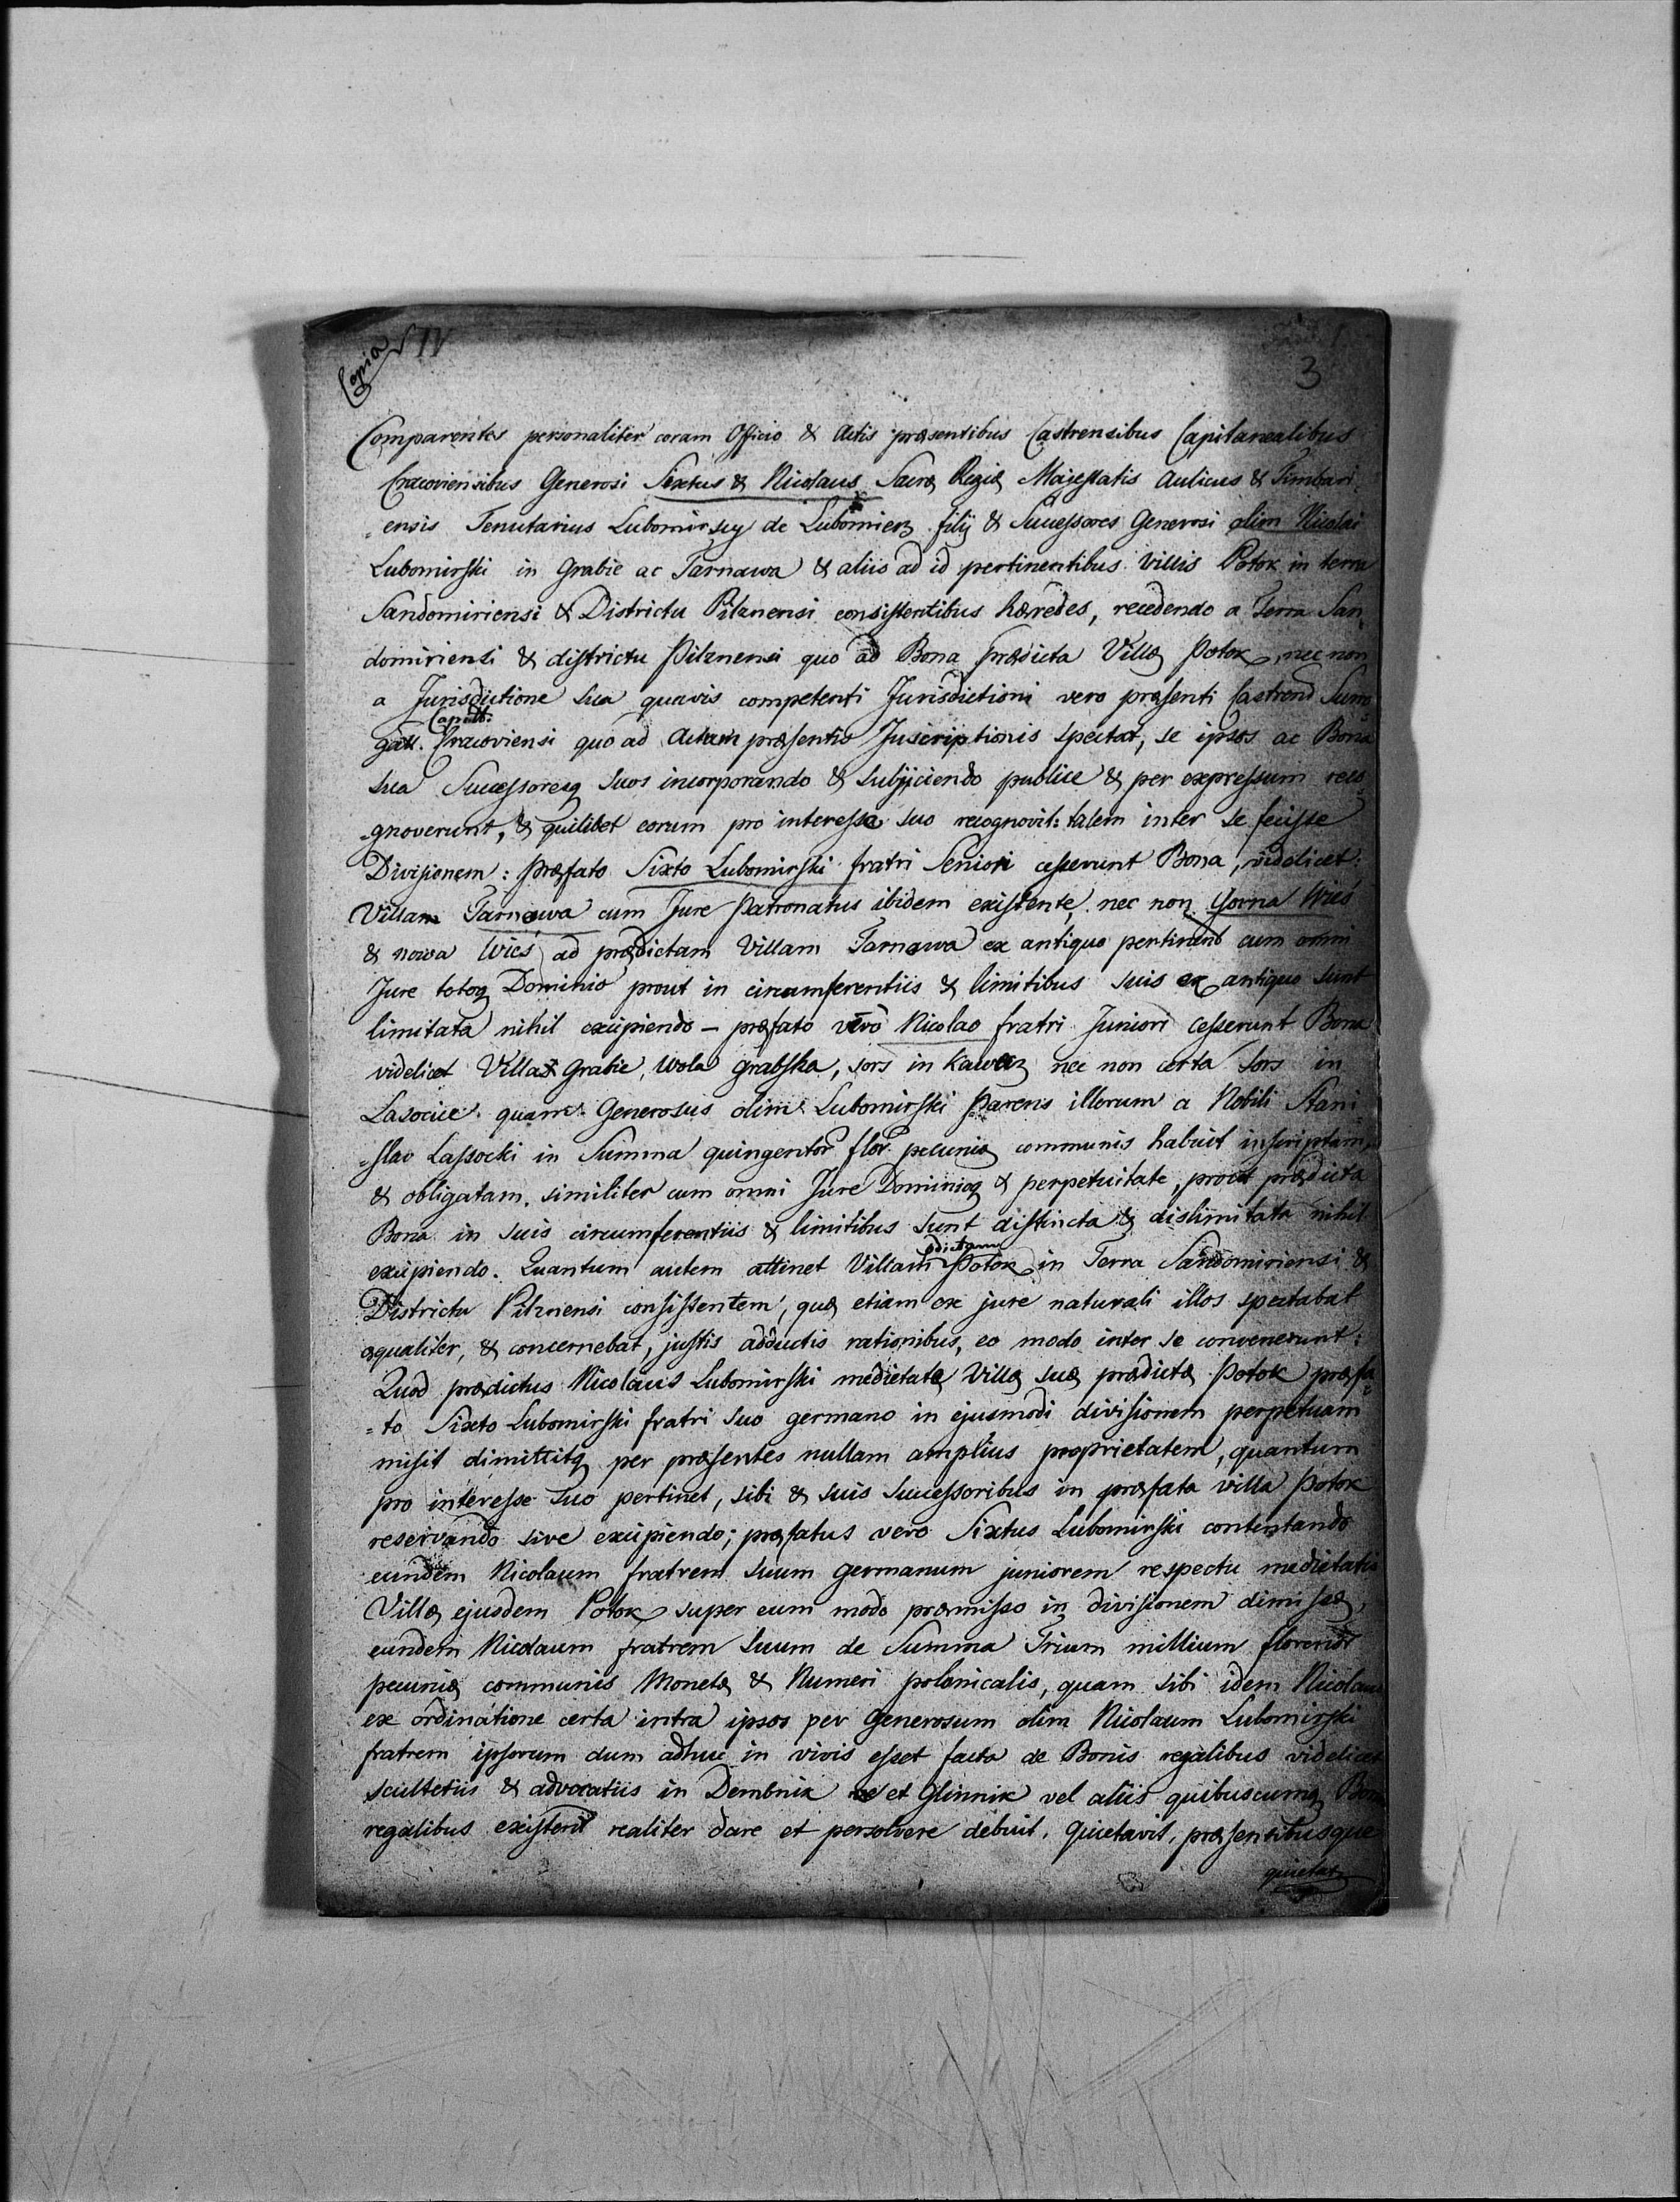 Copia
IV
3
Comparentes personaliter coram Officio & Actis præsentibus Castrensibus Capitanealibus
Cracoviensibus Generosi Sixtus & Nicolaus Sacræ Regiæ Majestatis Aulicus & Timbari-
-ensis Tenutarius Lubomirscy de Lubomierz filij & Successores Generosi olim Nicolai
Lubomirski in Grabie ac Tarnawa & aliis ad id pertinentibus villis Potok in terra
Sandomiriensi & Districtu Pilznensi consistentibus hæredes, recedendo a Terra San,
domiriensi & districtu Pilznensi quo ad Bona prædicta Villæ Potok, nec non
a Jurisdictione sua quavis competenti Jurisdictioni vero præsenti Castrend Surro
Capitt:
gatt. Cracoviensi quo ad Actum præsentis Juscriptionis spectat, se ipsos ac Bona
sua Successoresq suos incorporando & subjiciendo publice & per expressum reco
-gnoverunt, & quilibet eorum pro interesse suo recognovit: talem inter se fecisse
Divisionem: præfato Sixto Lubomirski fratri Seniori cesserunt Bona, videlicet:
Villam Tarnawa cum Jure Patronatus ibidem existente, nec non Gorna Wieś
& nowa Wieś ad prædictam Villam Tarnawa ex antiquo pertinent cum omni
Jure totoq Dominio prout in circumferentiis & limitibus suis ex antiquo sunt
limitata nihil excipiendo – præfato vero Nicolao fratri Juniori cesserunt Bona
videlicet Villas Grabie, Wola grabska, sors in Kawecz nec non certa sors in
Lasocice quam Generosus olim Lubomirski Parens illorum a Nobili Stani-
=slao Lassocki in Summa quingentor flor pecuniæ communis habuit inscriptam,
& obligatam, similiter cum omni Jure Dominioq & perpetuitate, prout prædicta
Bona in suis circumferentiis & limitibus sunt distincta & dislimitata nihil
excipiendo. Quantum autem attinet Villam Potok in Terra Sandomiriensi &
Districtu Pilznensi consistentem, quæ etiam ex jure naturali illos spectabat
æqualiter, & concernebat, justis adductis rationibus, eo modo inter se convenerunt:
Quod prædictus Nicolaus Lubomirski medietatæ Villæ suæ prædictæ Potok præfa-
=to Sixto Lubomirski fratri suo germano in ejusmodi divisionem perpetuam
misit dimittitq per præsentes nullam amplius proprietatem, quantum
pro interesse suo pertinet, sibi & suis Successoribus in præfata villa Potok
reservando sive excipiendo; præfatus vero Sixtus Lubomirski contentando
eundem Nicolaum fratrem suum germanum juniorem respectu medietatis
Villæ ejusdem Potok super eum modo præmisso in divisionem dimissæ,
eundem Nicolaum fratrem suum de Summa Trium millium florenor
pecuniæ communis Monetæ & Numeri polonicalis, quam sibi idem Nicolaus
ex ordinatione certa intra ipsos per Generosum olim Nicolaum Lubomirski
fratrem ipsorum dum adhuc in vivis esset facta de Bonis regalibus videlicet
scultetiis & advocatiis in Dembnik et Glinnik vel aliis quibuscumq Bonis
regalibus existent realiter dare et persolvere debuit, quietavit, præsentibusque
quietat